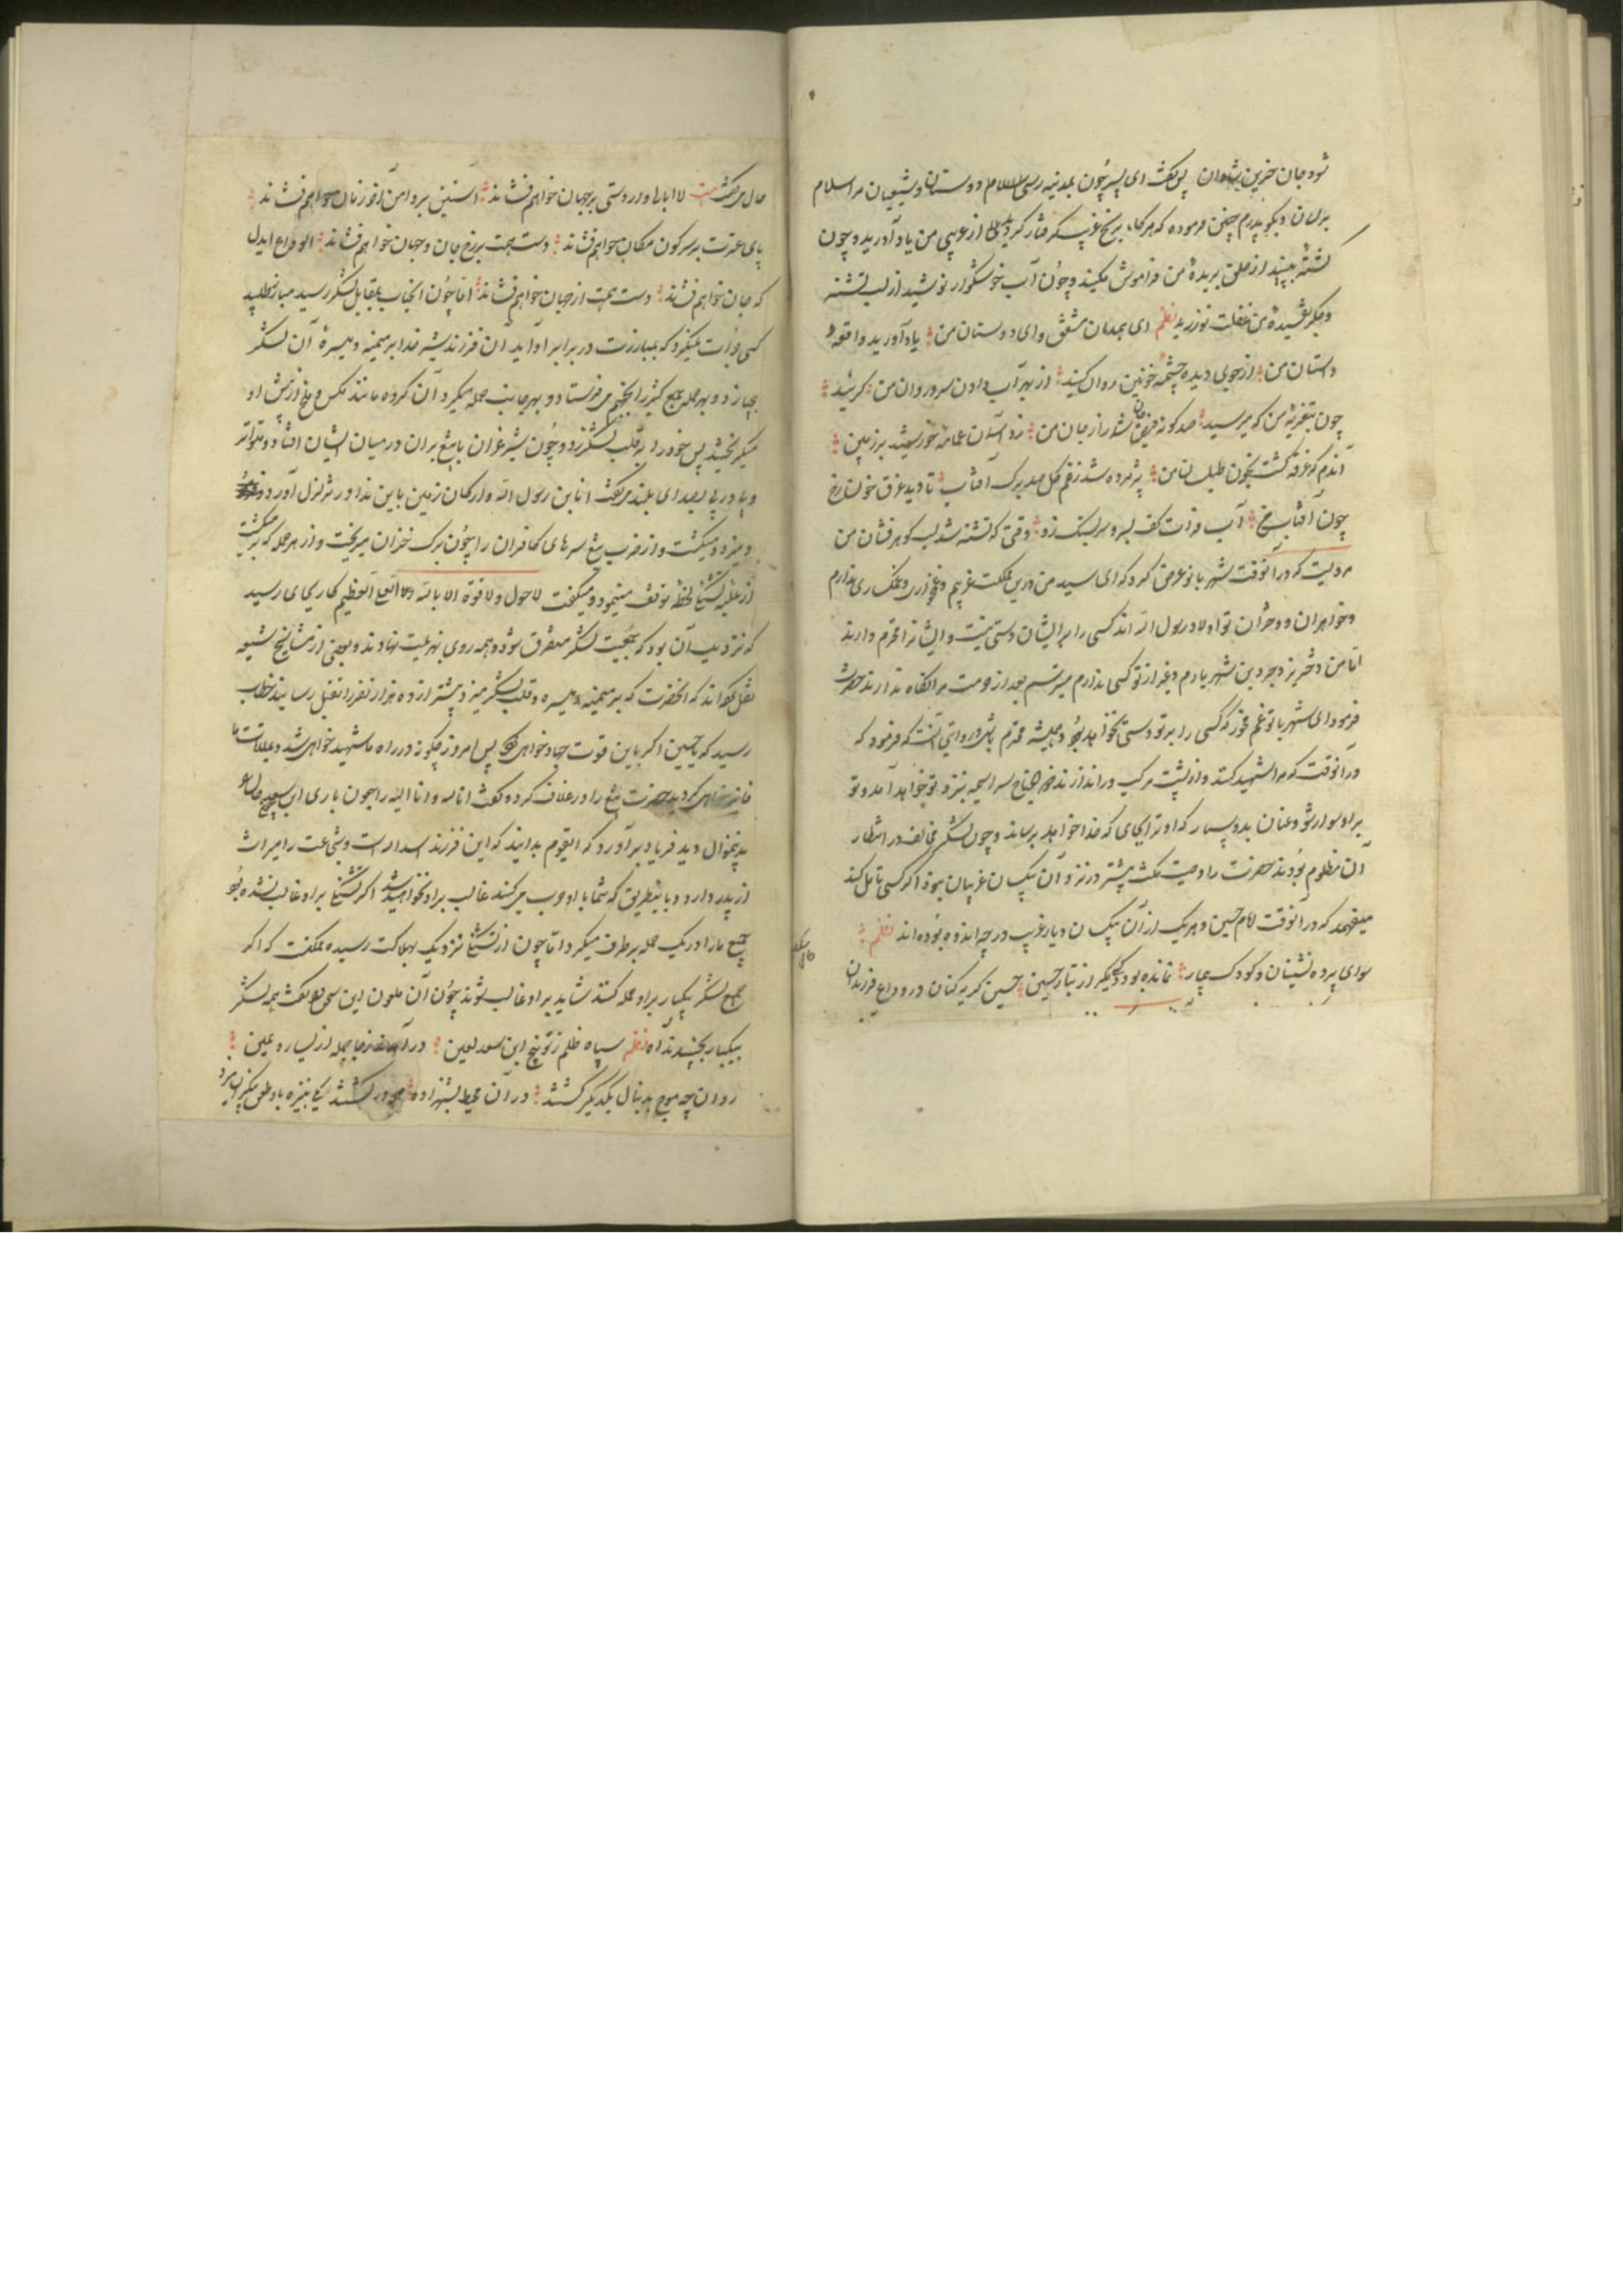 شود جان حزین شادان پس گفت ای پسر چون بمدینه رسی دوستان و شیعیان مرا سلام
برسان و بگو پدرم چنین فرموده که هرگاه برنج غربت گرفتار گردید از غریبی من یاد آورید و چون
کشته بینید از حلق بریده من فراموش مکنید و چون آب خوشگوار نوشید از لب تشنه
و جگر تفسیده من غفلت نورزید نظم ای همدمان مشفق و ای دوستان من یاد آورید واقعه
داستان من از جوی دیده چشمه خونین روان کنید از بهر آب دادن سرو روان من
چون بتعزیه من که میرسد صد گونه فیض از جان من زد آسمان عمامه خورشید بر زمین
آندم که غرقه گشت بخون طیلسان من پژمرده شد ز غم گل صد برگ آفتاب تا دید غرق خون رخ
چون آفتاب من آب فرات کف بسر و سر بسنگ زد وقتی که تشنه شد لب گوهر فشان من
مرویست که در آنوقت شهربانو عرض کرد که ای سید من درین مملکت غریبم و غمگساری ندارم
و خواهران و دختران تو اولاد رسول الله اند کسی را بر ایشان دستی نیست و ایشانرا محترم دارند
اما من دختر یزدجرد بن شهریارم و غیر از تو کسی ندارم میترسم بعد از تو حرمت مرا نگاه ندارند حضرت
فرمود ای شهربانو غم مخور که کسی را بر تو دستی نخواهد بود و همیشه محترم باشی و در روایتی آنست که فرمود که
در آنوقت که مرا شهید کنند و از پشت مرکب در اندازند ذوالجناح سراسیمه بنزد تو خواهد آمد و تو
بر او سوار شو و عنان بدو بسپار که او ترا بجای که خدا خواهد برساند و چون لشکر مخالف در انتظار
آن مظلوم بودند حضرت را وصیت گفت بیشتر در نزد آن بیکسان غریبان بود اگر کسی تأمل کند
میفهمد که در آنوقت امام حسین و هر یک از آن بیکسان دیار غریب در چه اندوه بوده اند نظم
سوای پرده نشینان و کودک بیمار نمانده بود دیگر از تبار حسین حسین گریه کنان در وداع فرزندان
حال میگفت بیت لاابالی وار دستی بر جهان خواهم فشاند آستین بر دامن آخر زمان خواهم فشاند
پای عزت بر سر کون مکان خواهم فشاند دست همت بر رخ جان و جهان خواهم فشاند الوداع ایدل
که جان خواهم فشاند دست همت از جهان خواهم فشاند اما چون آنجناب بمقابل لشکر رسید مبارز طلبید
کسی جرأت نمیکرد که بمبارزت در برابر او آید آن فرزند شیر خدا بر میمنه و میسره آن لشکر
میتازد و بهر حمله جمع کثیر را بجهنم میفرستاد و بهر جانب حمله میکرد آن گروه مانند مگس و ملخ از پیش او
میگریختند پس خود را بر قلب لشکر زد و چون شیر غران با تیغ بران در میان ایشان افتاد و متواتر
و پا در پی بصدای بلند میگفت انا بن رسول الله و ارکان زمین باین ندا در تزلزل آورد
و میزد و میکشت و از ضرب تیغ سرهای کافران را چون برگ خزان میریخت و از هر حمله که بر میگشت
از غلبه تشنگی لحظه توقف مینمود و میگفت لا حول و لا قوة الا بالله العلی العظیم کار بجای رسید
که نزدیک آن بود که جمعیت لشکر متفرق شود و همه روی بهزیمت نهادند و بعضی از مشایخ شیعه
نقل کرده اند که آنحضرت که بر میمنه و میسره و قلب لشکر میزد بیشتر از ده هزار نفر را بقتل رسانید خطاب
رسید که یا حسین اگر باین قوت جهاد خواهی کرد پس امروز چگونه در راه ما شهید خواهی شد و بملاقات ما
فایز خواهی گردید حضرت تیغ را در غلاف کرد و گفت انا لله و انا الیه راجعون باری ابن سعد چون حال او
بدینمنوال دید فریاد برآورد که ایقوم بدانید که این فرزند اسدالله است و شجاعت را میراث
از پدر دارد و باینطریق که شما با او حرب میکنید غالب بر او نخواهید شد اگر تشنگی بر او غالب نشده بود
جمیع ما را در یک حمله برطرف میکرد اما چون از تشنگی نزدیک بهلاکت رسیده ممکنست که اگر
جمع لشکر یکبار بر او حمله کنند شاید بر او غالب شوند چون آن ملعون این سخن گفت همه لشکر
بیکبار بجنبیدند آه نظم سپاه ظلم ز توبیخ ابن سعد لعین در آمدند ز جا جمله از یسار و یمین
روان چه موج بدنبال یکدیگر گشتند در آن محیط بشهزاده حمله‌ور گشتند یکی بنیزه باو طعن بیکران میزد